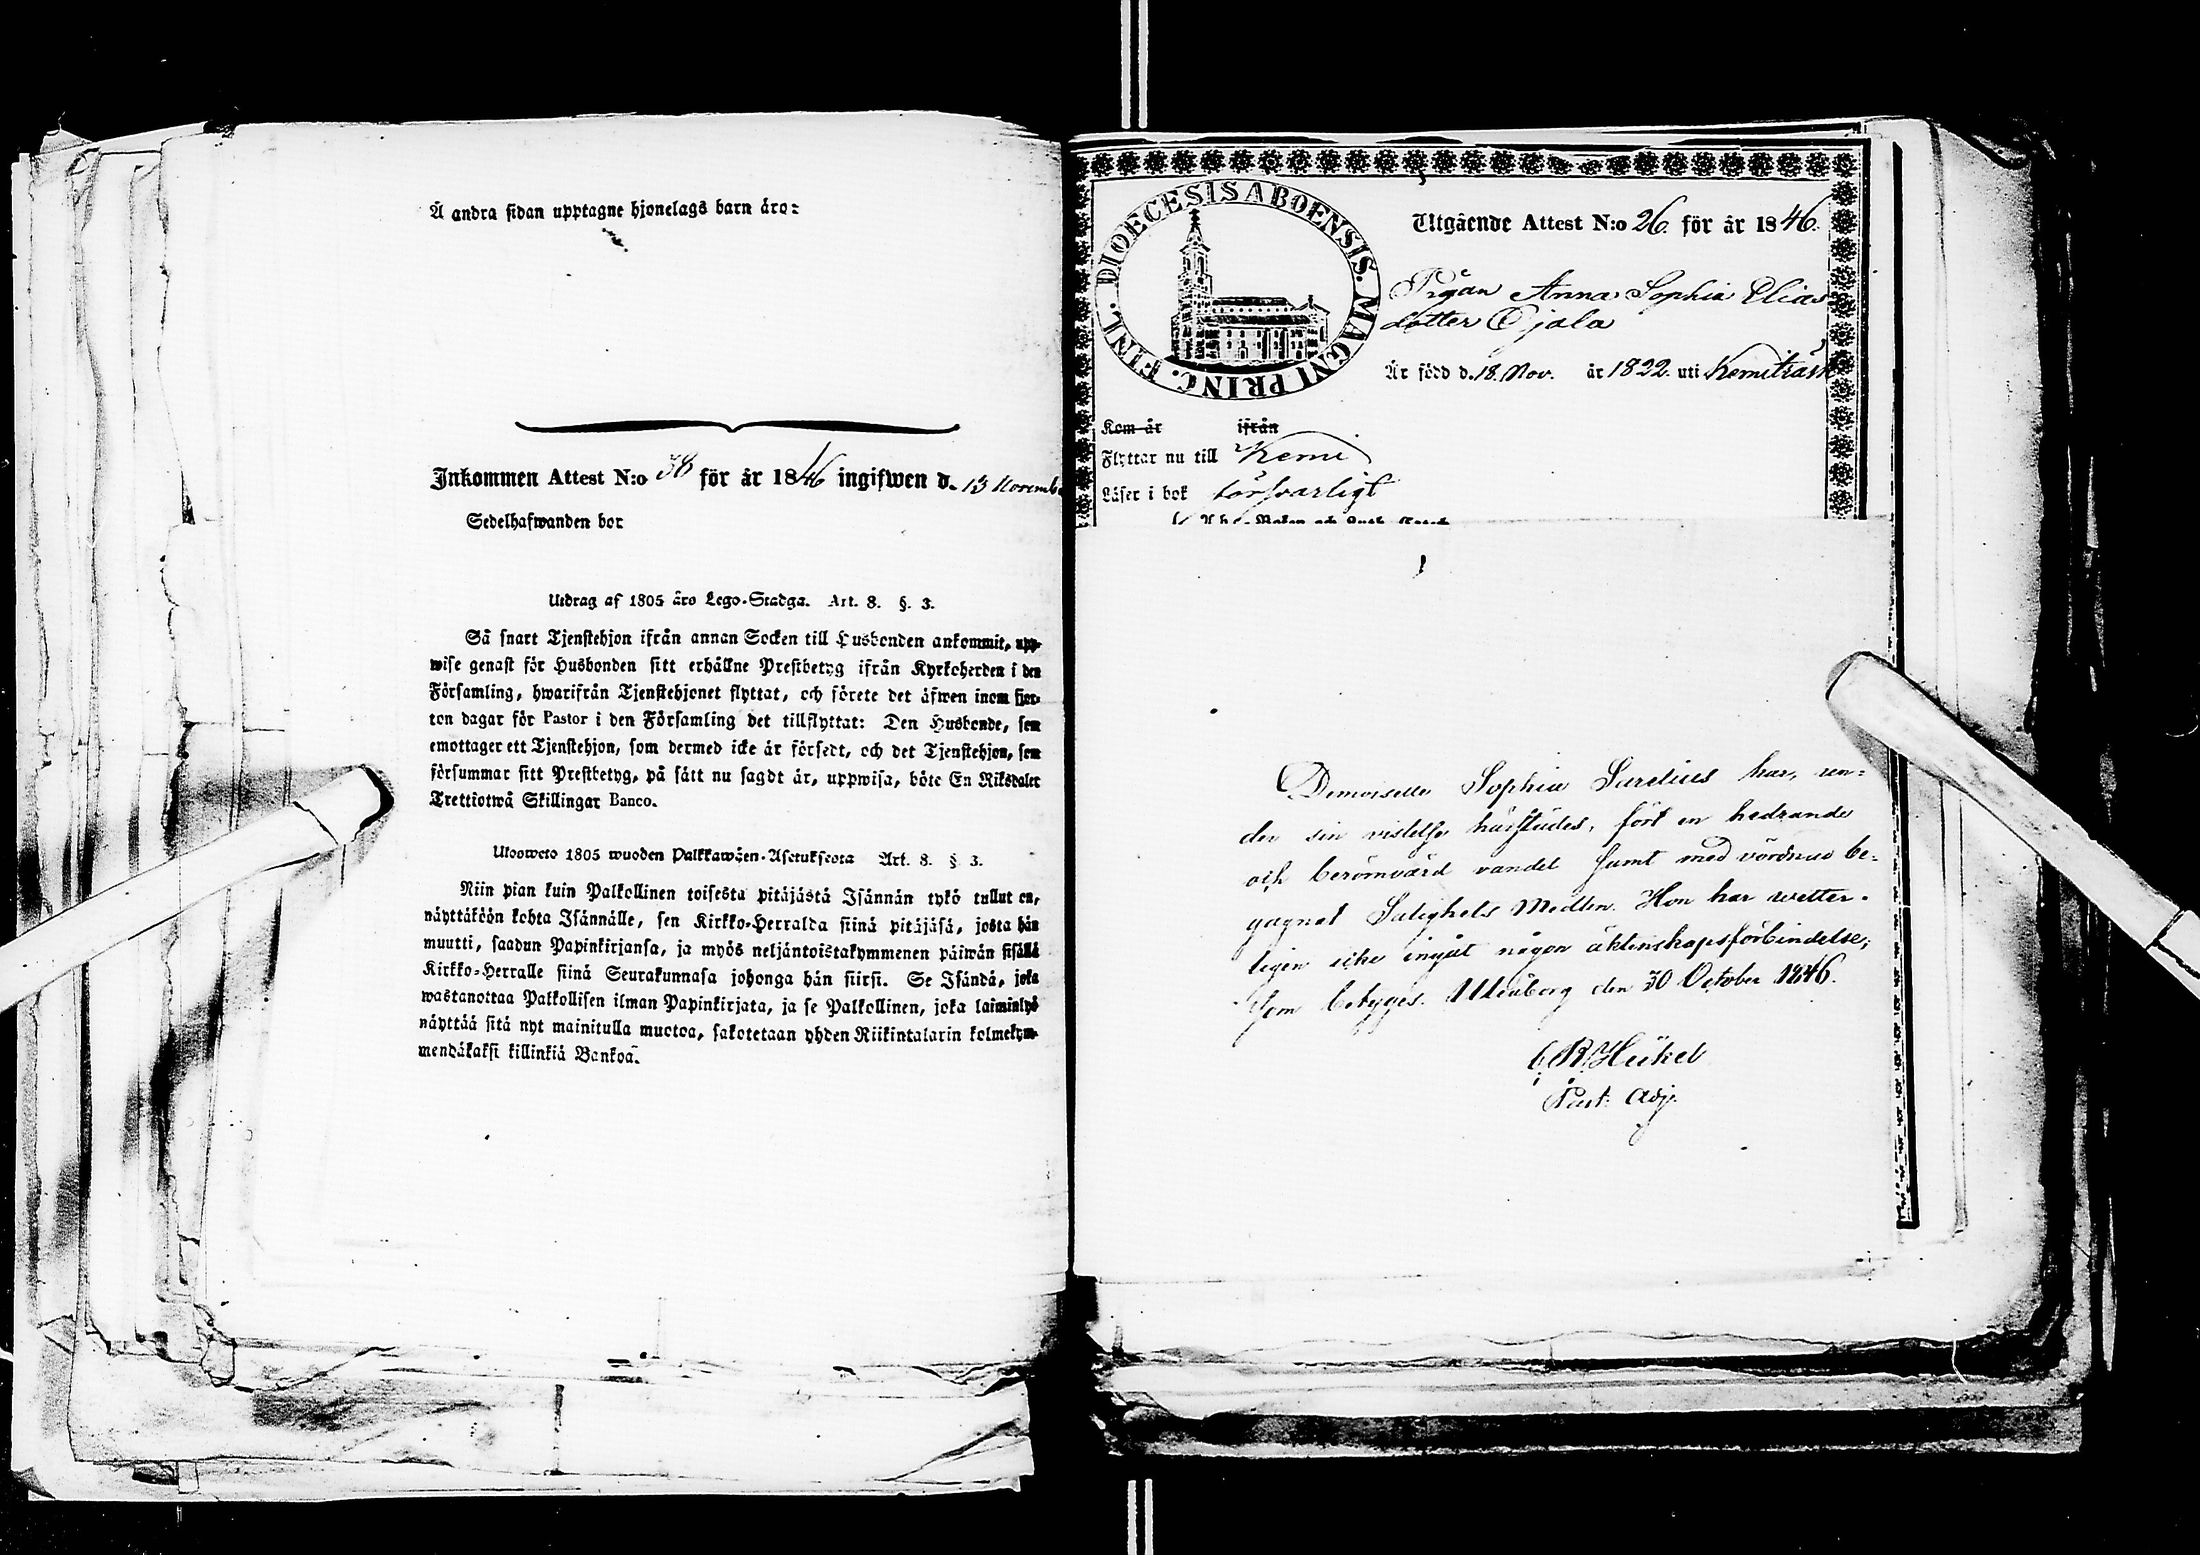 Å andra sidan upptagne hjonelags barn äro:
Inkommen Attest N:o 38 för år 1846 ingifwen d. 13 Novemb
Sedelhafwanden bor
Utdrag af 1805 års Lego-Stadga. Art. 8. §. 3.
Så snart Tjenstehjon ifrån annan Socken till Husbonden ankommit, upp-
wise genast för Husbonden sitt erhållne Prestbetyg ifrån Kyrkoherden i den
Församling, hwarifrån Tjenstehjonet flyttat, och förete det äfwen inom fjor-
ton dagar för Pastor i den Församling det tillflyttat: Den Husbonde, som
emottager ett Tjenstehjon, som dermed icke är försedt, och det Tjenstehjon, som
försummar sitt Prestbetyg, på sätt nu sagdt är, uppwisa, böte En Riksdaler
Trettiotwå Skillingar Banco.
Uloosweto 1805 wuoden Palkkawäen-Asetuksesta Art. 8. § 3.
Niin pian kuin Palkollinen toisesta pitäjästä Isännän tykö tullut on,
näyttäköön kohta Isännälle, sen Kirkko-Herralda siinä pitäjäsä, josta hän
muutti, saadun Papinkirjansa, ja myös neljäntoistakymmenen päiwän sisällä
Kirkko-Herralle siinä Seurakunnasa johonga hän siirsi. Se Isändä, joka
wastanottaa Palkollisen ilman Papinkirjata, ja se Palkollinen, joka laiminlyö
näyttää sitä nyt mainitulla muotoa, sakotetaan yhden Riikintalarin kolmekym-
mendäkaksi killinkiä Bankoa.
DIOECESIS ABOENSIS. MAGNI PRINC. FINL.
Utgående Attest N:o 26. för år 1846.
Pigan Anna Sophia Elias
dotter Ojala
Är född d. 18. Nov. år 1822. uti Kemiträsk
Kom år ifrån
Flyttar nu till Kemi
Läser i bok försvarligt
Demoiselle Sophia Sarelius har, un-
der sin vistelse härstädes, fört en hedrande
och berömvärd vandel samt med vördnad be-
gagnat Salighets Medlen. Hon har wetter-
ligen icke ingåt någon äktenskapsförbindelse;
Som betygges. Uleåborg den 30 October 1846.
Past: Adj.